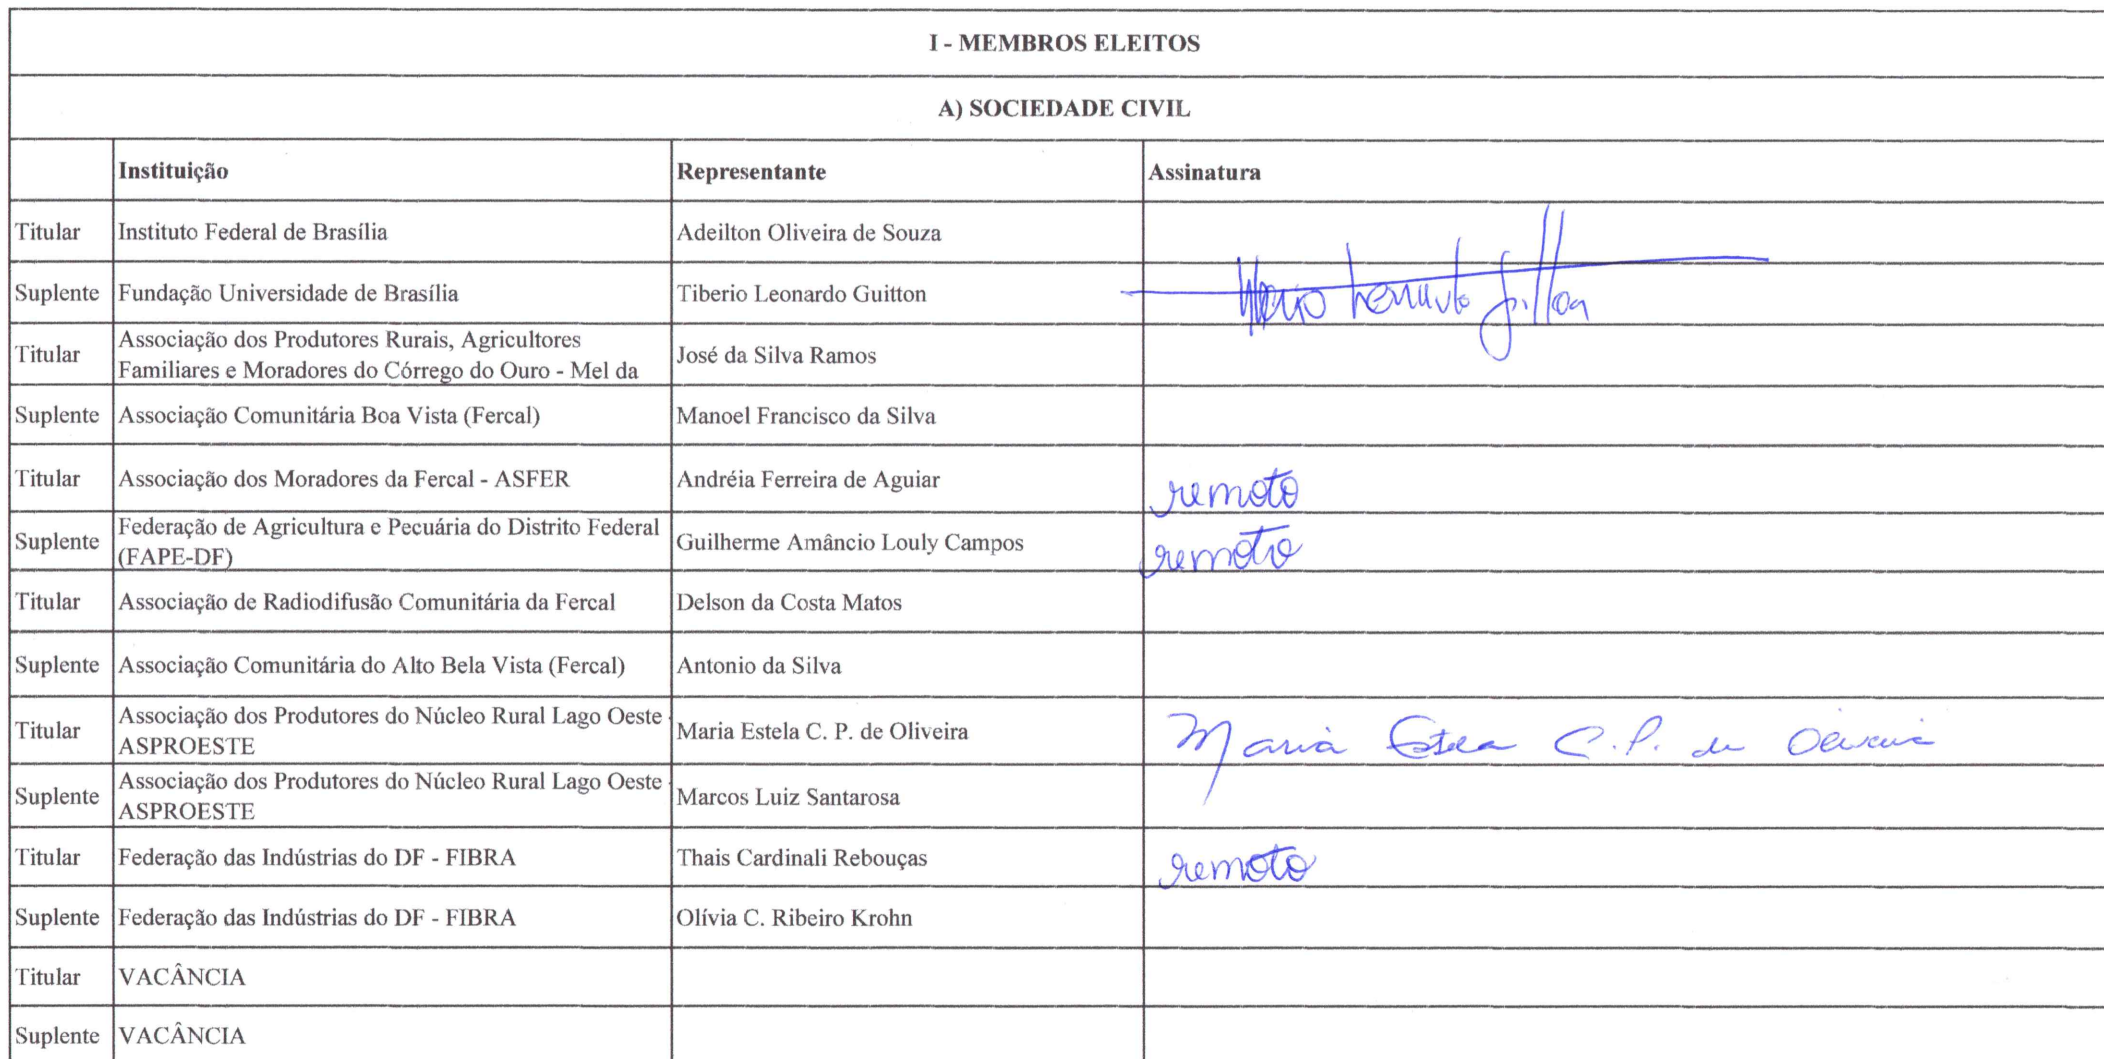 I - MEMBROS ELEITOS
A) SOCIEDADE CIVIL
Instituição Representante Assinatura
Titular Instituto Federal de Brasília Adeilton Oliveira de Souza
Suplente Fundação Universidade de Brasília Tiberio Leonardo Guitton
Titular Associação dos Produtores Rurais, Agricultores
Familiares e Moradores do Córrego do Ouro - Mel da José da Silva Ramos
Suplente Associação Comunitária Boa Vista (Fercal) Manoel Francisco da Silva
Titular Associação dos Moradores da Fercal - ASFER Andréia Ferreira de Aguiar remoto
Suplente Federação de Agricultura e Pecuária do Distrito Federal
(FAPE-DF) Guilherme Amâncio Louly Campos remoto
Titular Associação de Radiodifusão Comunitária da Fercal Delson da Costa Matos
Suplente Associação Comunitária do Alto Bela Vista (Fercal) Antonio da Silva
Titular Associação dos Produtores do Núcleo Rural Lago Oeste -
ASPROESTE Maria Estela C. P. de Oliveira Maria Estela C.P. de Oliveira
Suplente Associação dos Produtores do Núcleo Rural Lago Oeste -
ASPROESTE Marcos Luiz Santarosa
Titular Federação das Indústrias do DF - FIBRA Thais Cardinali Rebouças remoto
Suplente Federação das Indústrias do DF - FIBRA Olívia C. Ribeiro Krohn
Titular VACÂNCIA
Suplente VACÂNCIA